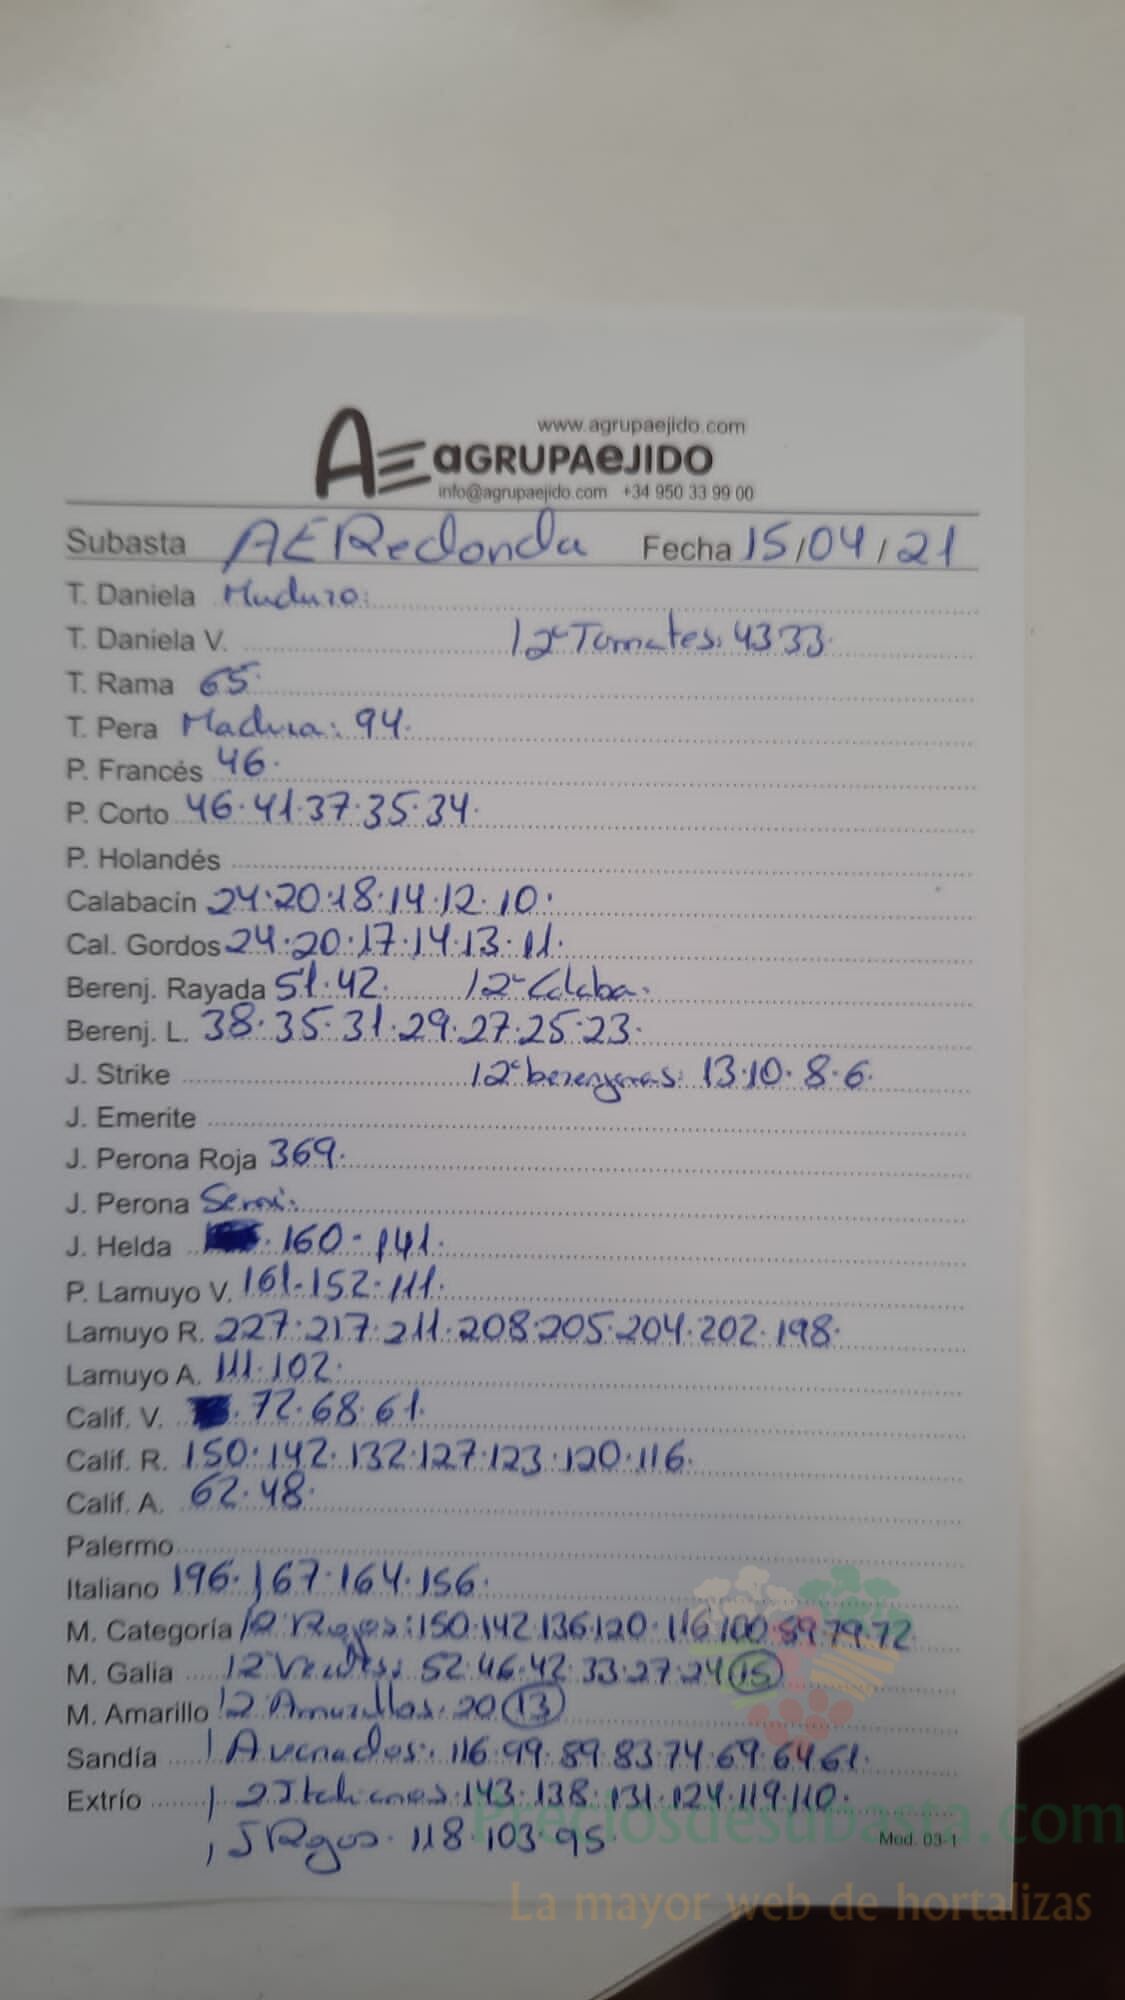 www.agrupaejido.com
AE aGRUPAeJIDO
info@agrupaejido.com +34 950 33 99 00
Subasta AERedonda Fecha 15/04/21
T. Daniela Maduro:
T. Daniela V. 12ª Tomates: 43 33.
T. Rama 65.
T. Pera Madura: 94.
P. Francés 46.
P. Corto 46.41.37.35.34.
P. Holandés
Calabacín 24.20.18.14.12.10.
Cal. Gordos 24.20.17.14.13.11.
Berenj. Rayada 51.42. 12ª Calaba.
Berenj. L. 38.35.31.29.27.25.23.
J. Strike 12ª berenjenas: 13.10.8.6.
J. Emerite
J. Perona Roja 369.
J. Perona Semi:
J. Helda 160-141.
P. Lamuyo V. 161-152.111.
Lamuyo R. 227.217.211.208.205.204.202.198.
Lamuyo A. 111.102.
Calif. V. 72.68.61.
Calif. R. 150.142.132.127.123.120.116.
Calif. A. 62.48.
Palermo
Italiano 196.167.164.156.
M. Categoría Rojos: 150.142.136.120.116.100.89.79.72
M. Galia 12 Verdes: 52.46.42.33.27.24 15
M. Amarillo 12 Amarillos. 20 13
Sandía 1 Avenados: 116.99.89.83.74.69.64.61.
Extrío 2 Italianos: 143.138.131.124.119.110.
Rojos. 118.103.95
Mod. 03-1
Preciosdesubasta.com
La mayor web de hortalizas